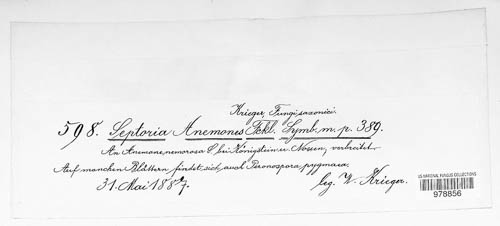 Krieger, Fungi saxonici.
598. Septoria Anemones Fckl. Symb. m. p. 389.
An Anemone nemorosa L. bei Königstein u. Nossen, verbreitet.
Auf manchen Blättern findet sich auch Peronospora pygmaea.
31. Mai 1887. leg. W. Krieger.
US NATIONAL FUNGUS COLLECTIONS
978856